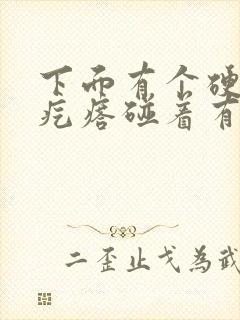 下面有个硬
疙瘩碰着有
二歪止戈為武